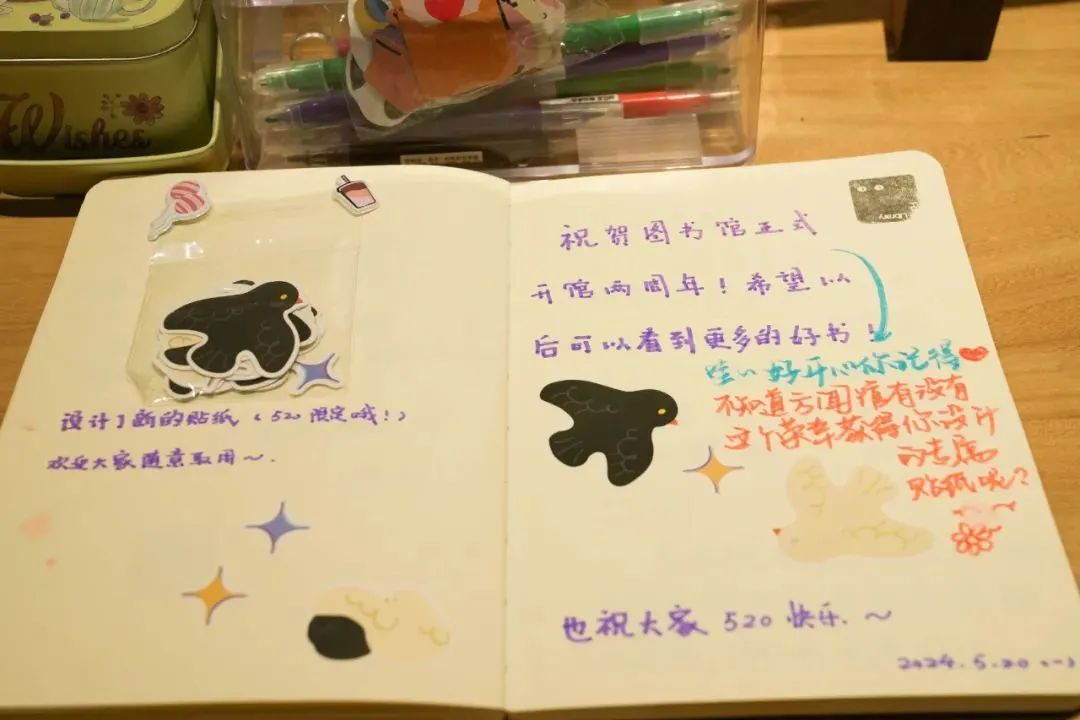 Wishes
设计了新的贴纸（520限定哦！）
欢迎大家随意取用～.
Library
祝贺图书馆正式
开馆两周年！希望以
后可以看到更多的好书！
哇~好开心你记得
不知道云闲瘤有没有
这个荣幸获得你设计
的专属
贴纸呢？
也祝大家 520 快乐.～
2024.5.20（一）